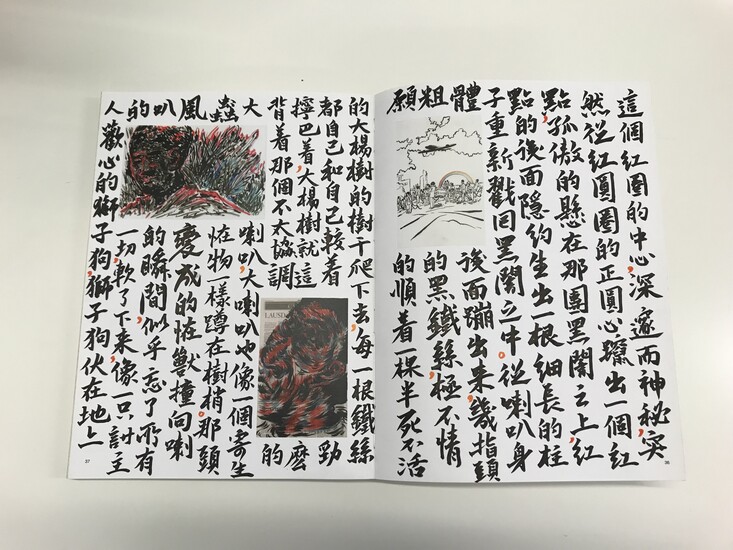 這個紅圈的中心,深邃而神祕,突
然從紅圓圈的正圓心躥出一個紅
點,孤傲的懸在那團黑闇之上,紅
點的後面隱約生出一根細長的柱
子重新戳回黑闇之中。從喇叭身
體後面蹦出来,幾指頭
粗的黑鐵絲,極不情
願的順着一棵半死不活
36
的大楊樹的樹干爬下去,每一根鐵絲
都自己和自己較着勁
擰巴着,大楊樹就這麼
背着那個不太協調的
大喇叭,大喇叭也像一個寄生
蟲怪物一樣蹲在樹梢。那頭
風變成的怪獸撞向喇
叭的瞬間似乎忘了所有
的一切,軟了下来,像一只討主
人歡心的獅子狗,獅子狗伏在地上
LAUSD
37